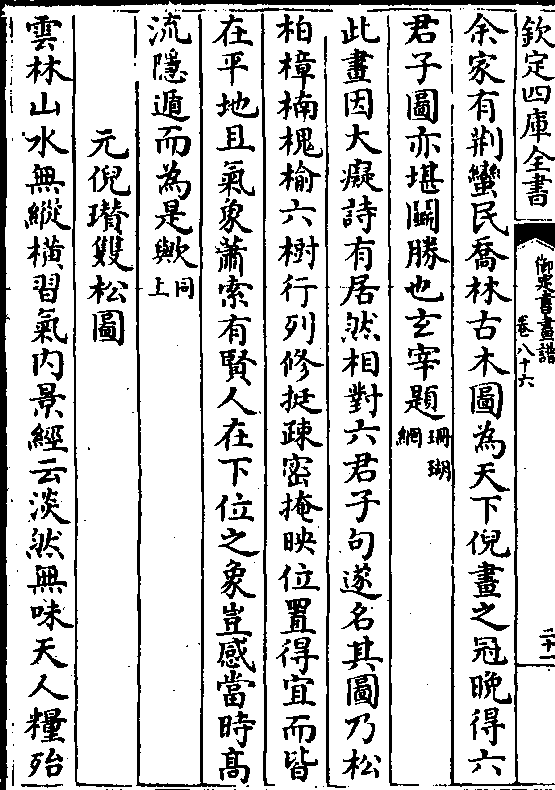 欽定四庫全書
御定書畫譜
卷八十六
二十二
余家有荆蠻民喬林古木圖為天下倪畫之冠晚得六
君子圖亦堪鬭勝也玄宰題珊瑚網
此畫因大癡詩有居然相對六君子句遂名其圖乃松
柏樟楠槐榆六樹行列修挺疎密掩映位置得宜而皆
在平地且氣象蕭索有賢人在下位之象豈感當時髙
流隱遁而為是歟同上
元倪瓚雙松圖
雲林山水無縱橫習氣内景經云淡然無味天人糧殆